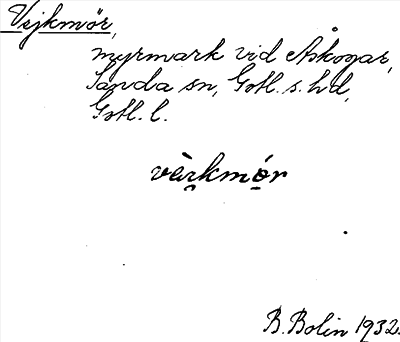 Vejkmör,
myrmark vid Åskogar,
Sanda sn, Gotl. s. hd,
Gotl. l.
vèrkmọr
B. Bolin 1932.